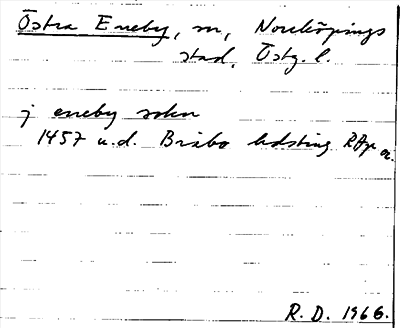 Östra Eneby, sn, Norrköpings
stad, Östg. l.
j eneby sokn
1457 u.d. Bråbo hdsting RAp or.
R.D. 1966.